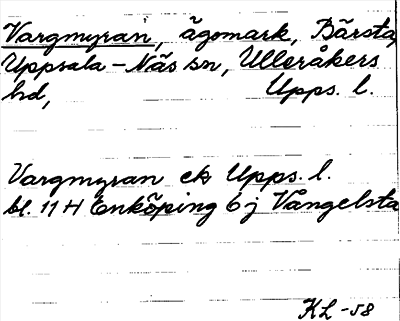 Vargmyran, ägomark, Bärsta,
Uppsala-Näs sn, Ulleråkers
hd, Upps. l.
Vargmyran ek Upps. l.
bl. 11 H Enköping 6 j Vångelsta
KL -58